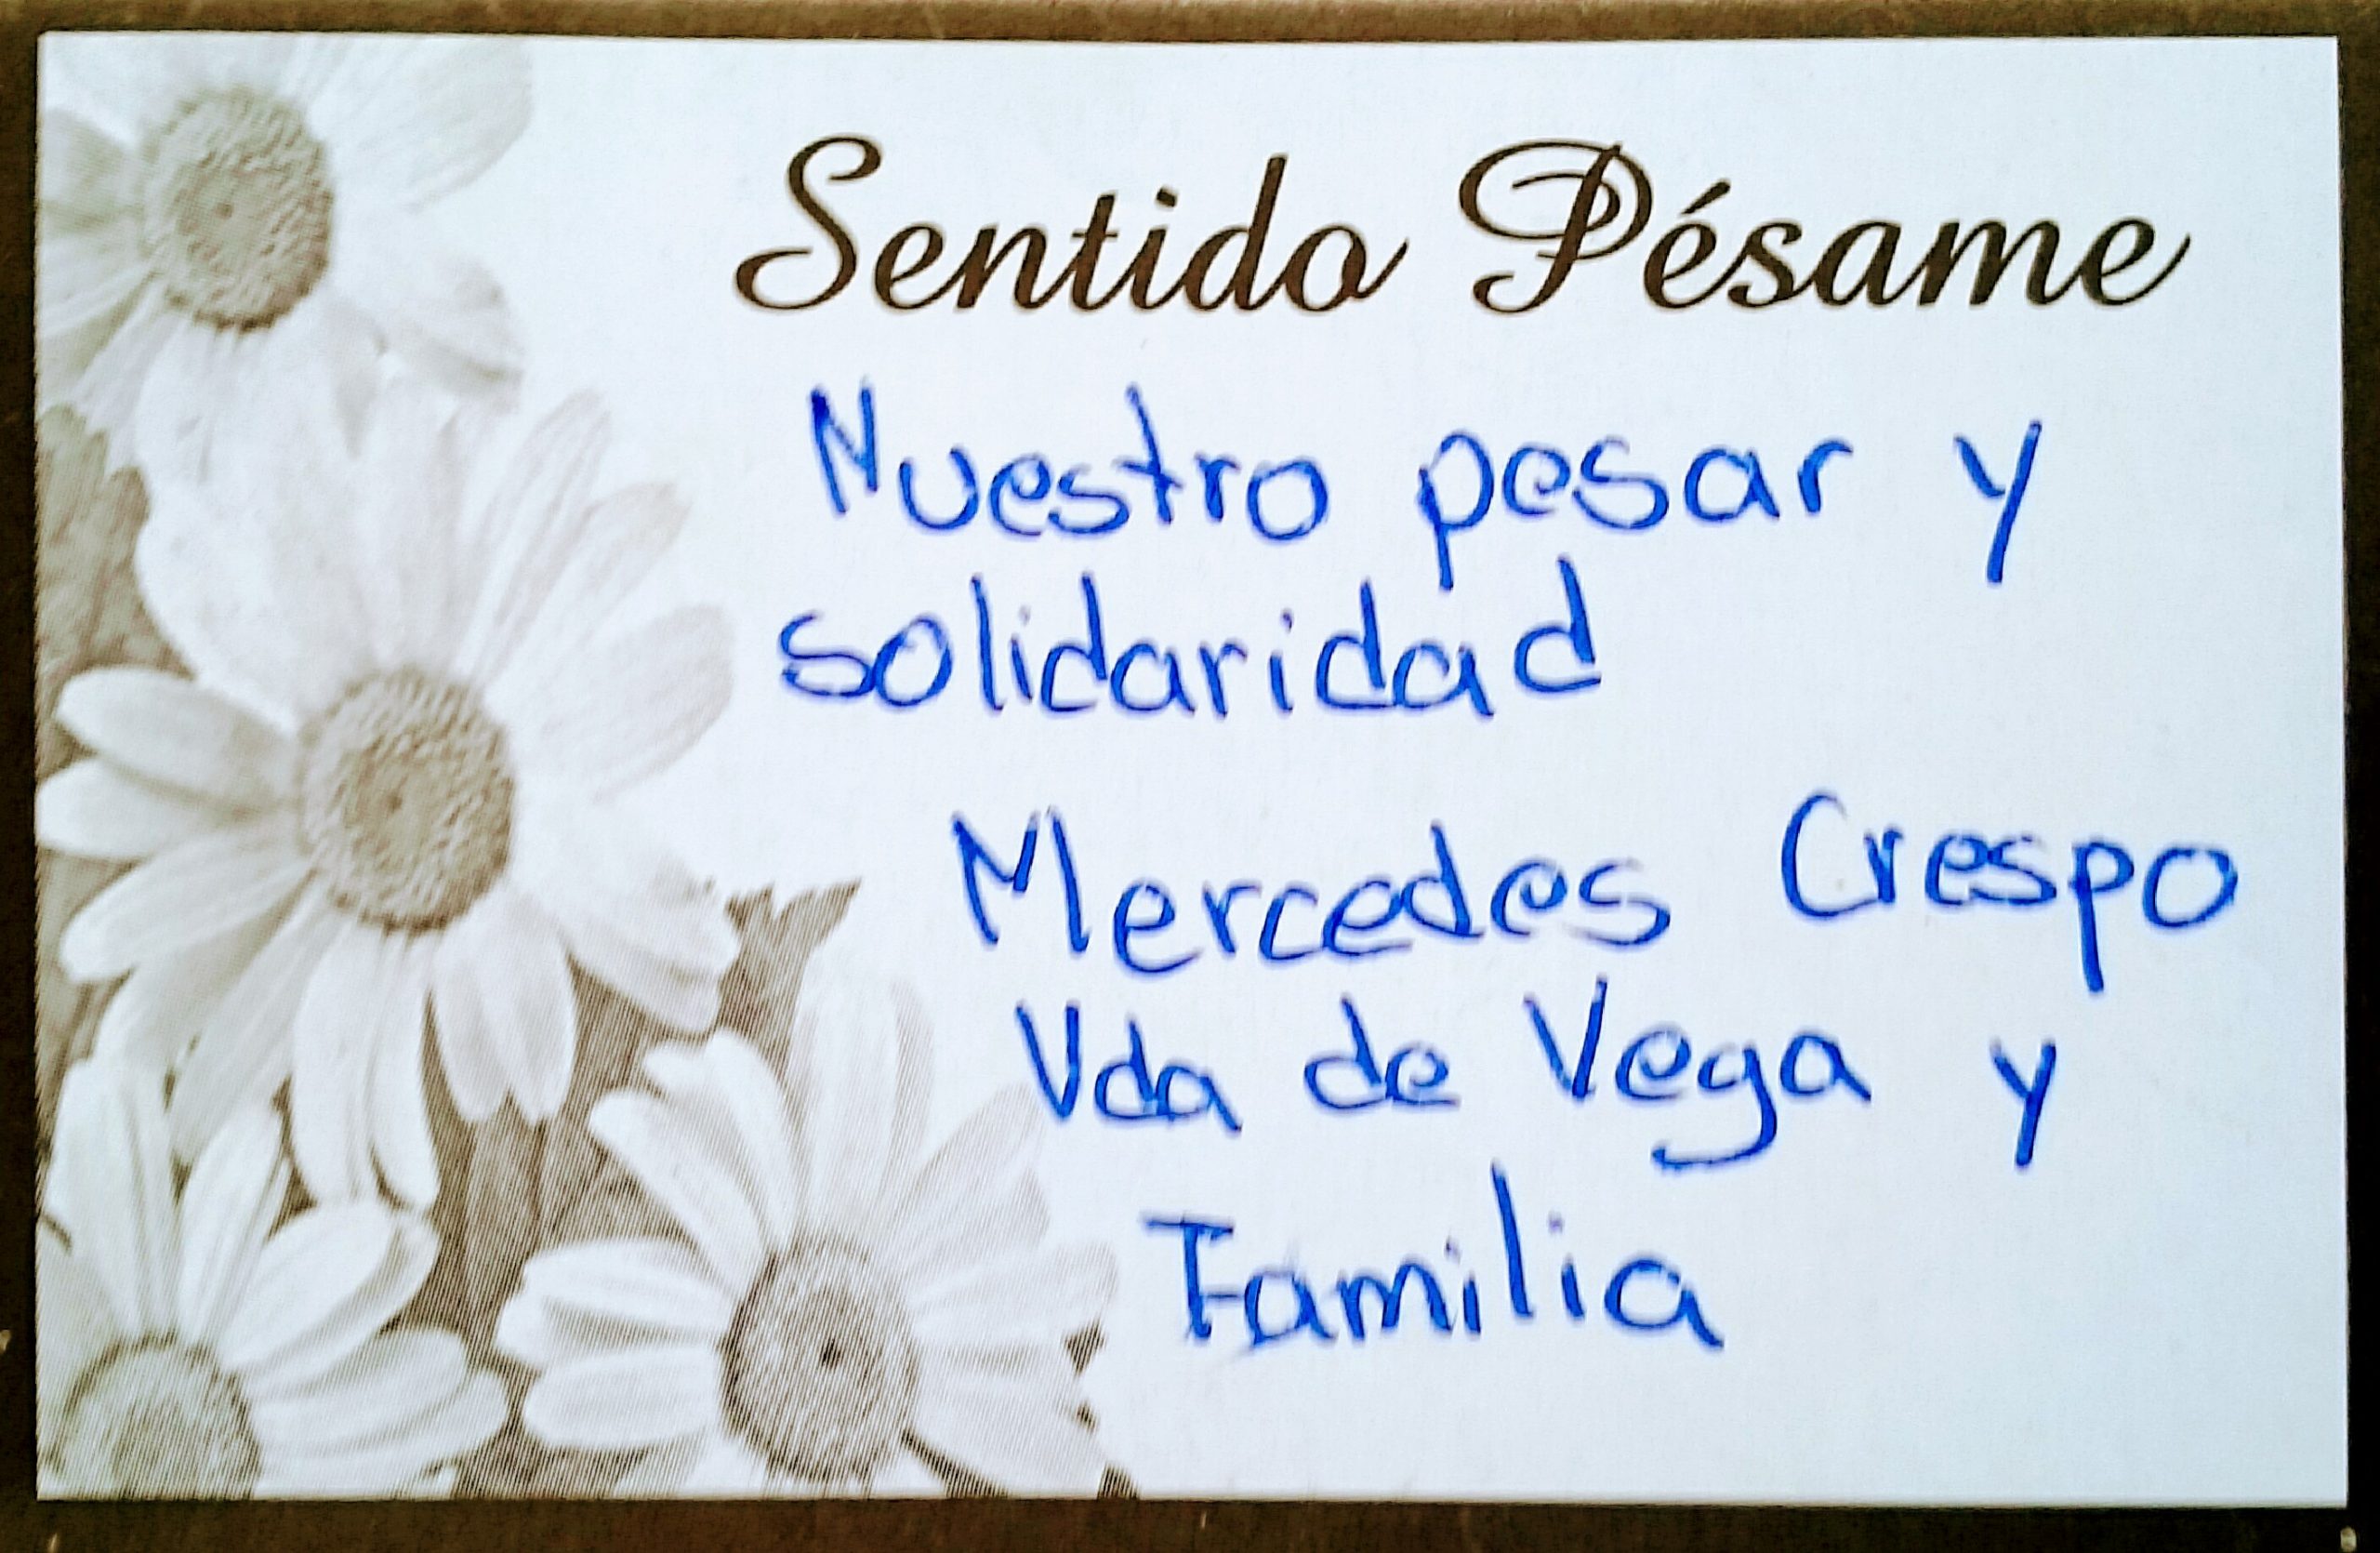 Sentido Pésame
Nuestro pesar y
solidaridad
Mercedes Crespo
Vda de Vega y
Familia